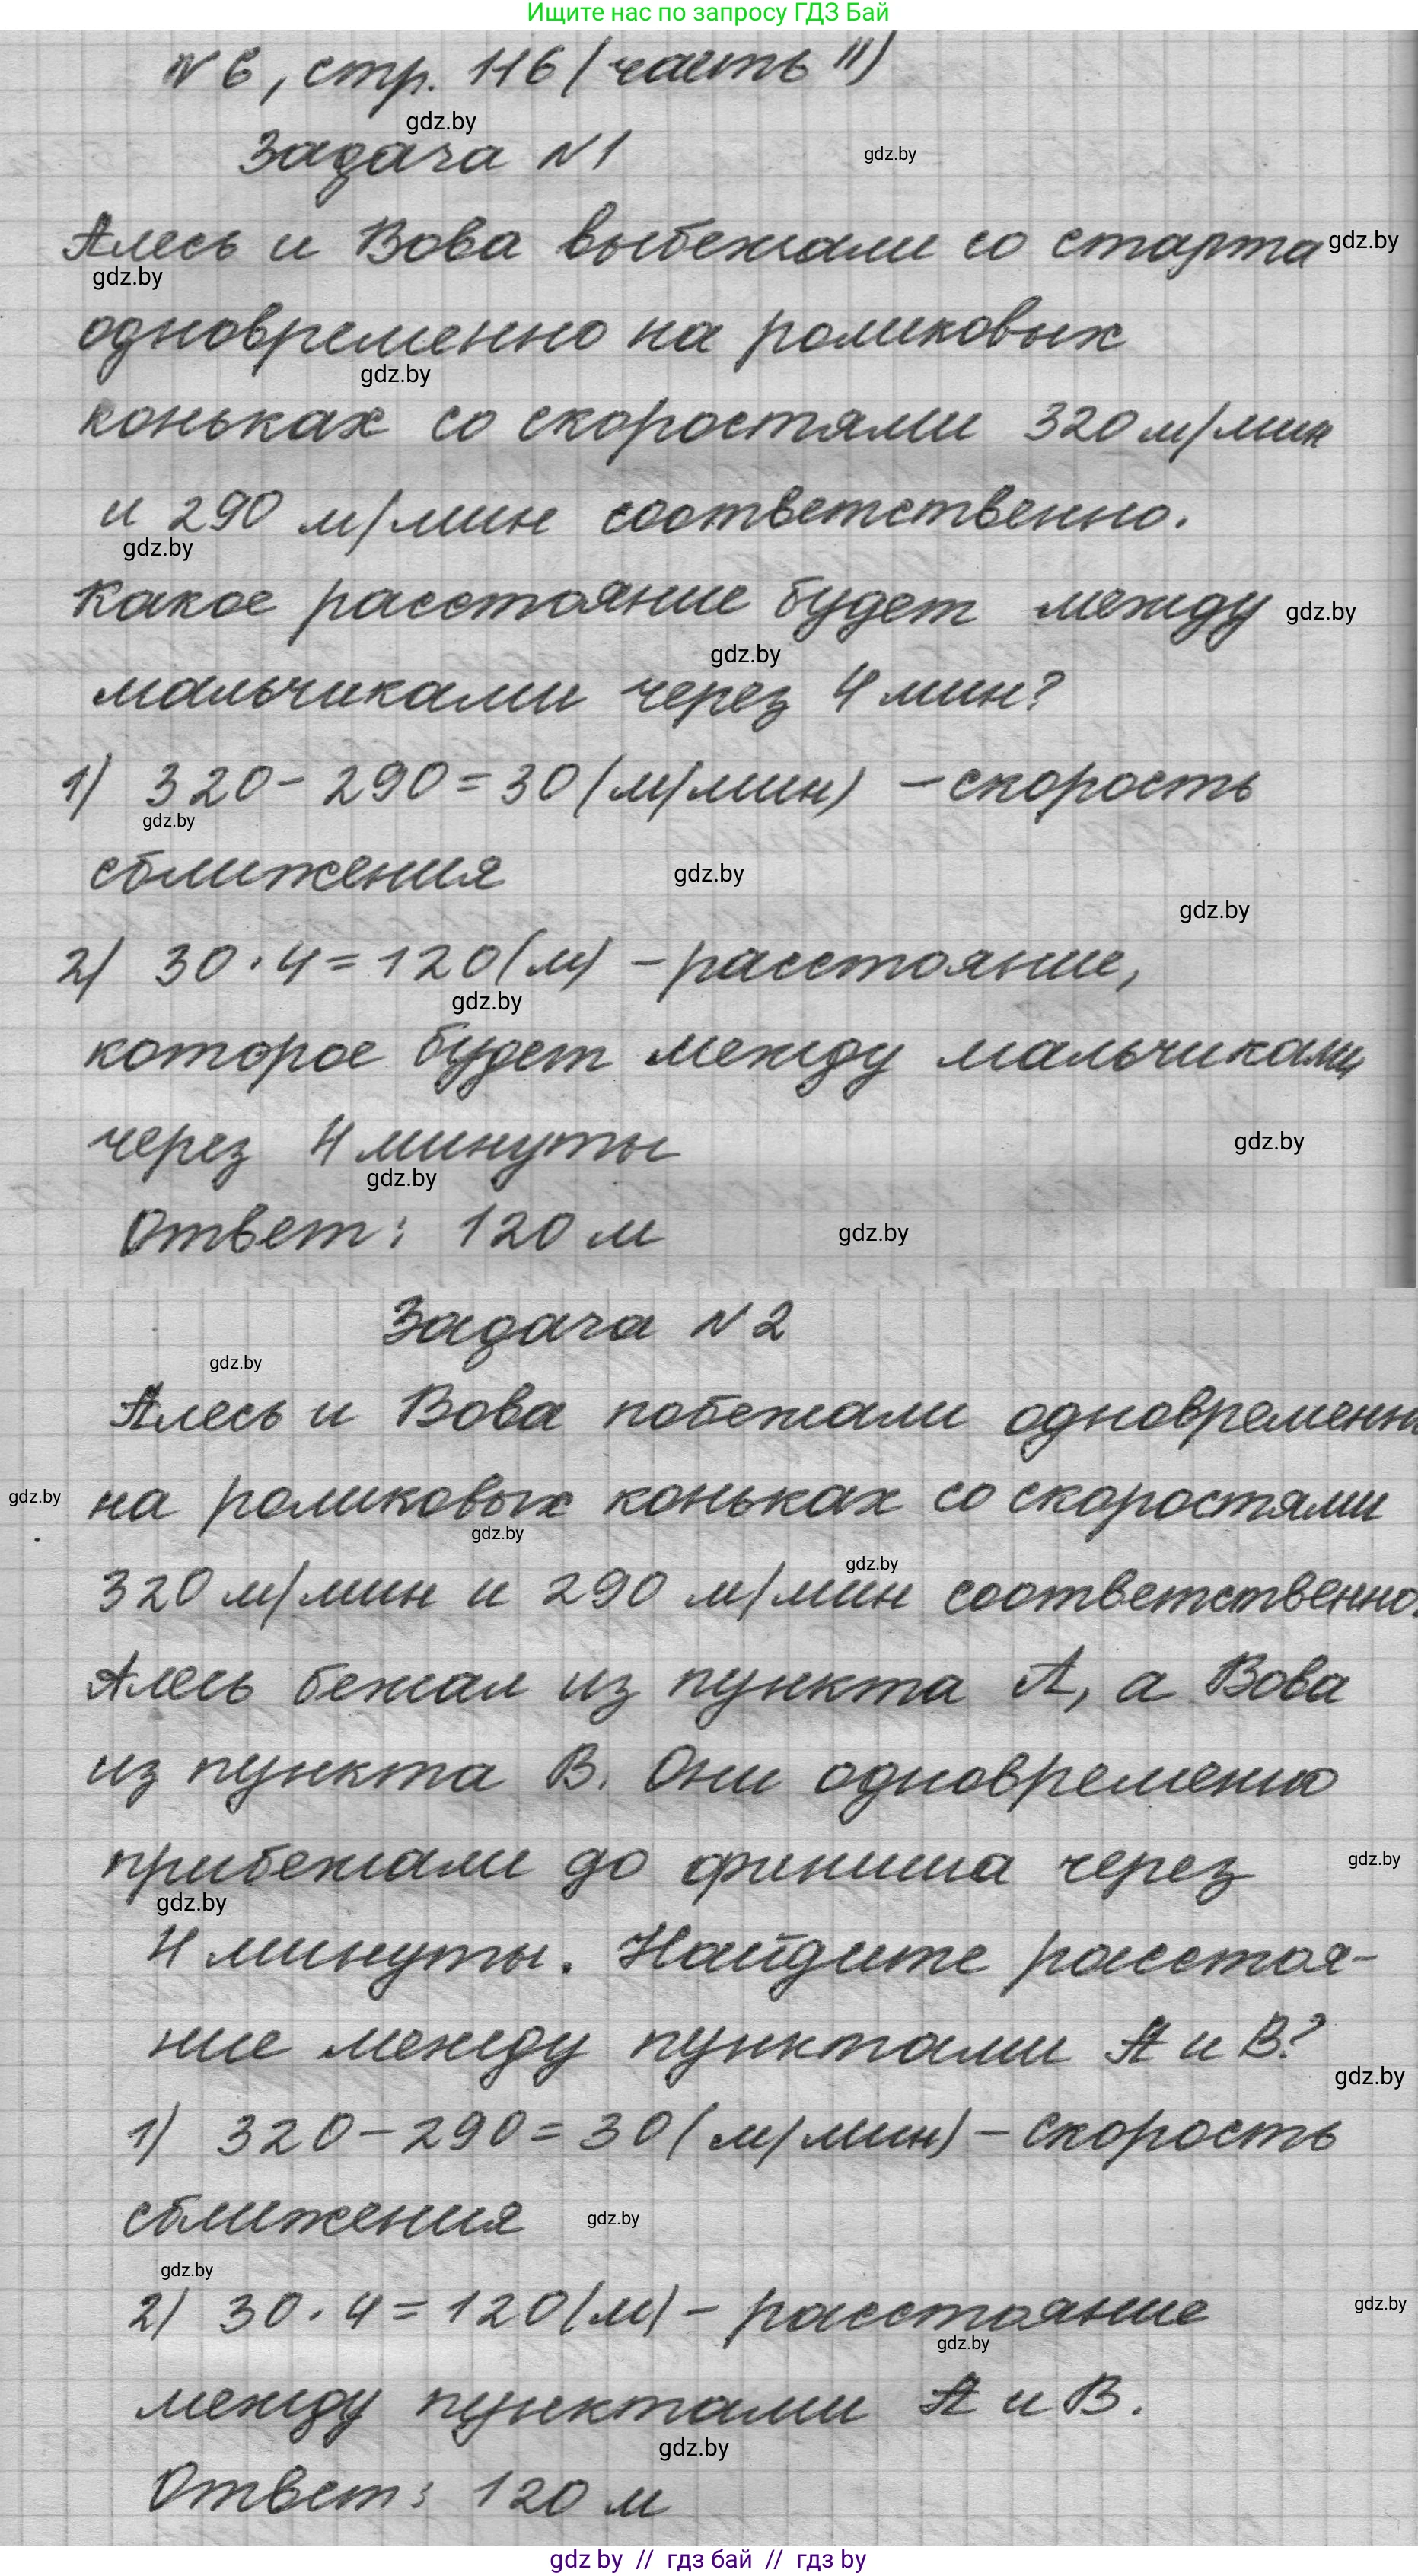 Ищите нас по запросу ГДЗ Бай
№6, стр. 116 (часть II)
gdz.by
Задача №1
gdz.by
Алесь и Вова выбежали со старта
gdz.by
gdz.by
одновременно на роликовых
gdz.by
коньках со скоростями 320 м/мин
и 290 м/мин соответственно.
gdz.by
Какое расстояние будет между
gdz.by
gdz.by
мальчиками через 4 мин?
1) 320 - 290 = 30 (м/мин) - скорость
gdz.by
сближения
gdz.by
gdz.by
2) 30 · 4 = 120 (м) - расстояние,
gdz.by
которое будет между мальчиками
через 4 минуты
gdz.by
gdz.by
Ответ: 120 м
gdz.by
Задача №2
gdz.by
Алесь и Вова побежали одновременн
gdz.by
на роликовых коньках со скоростями
gdz.by
gdz.by
320 м/мин и 290 м/мин соответственно.
Алесь бежал из пункта А, а Вова
из пункта В. Они одновременно
прибежали до финиша через
gdz.by
gdz.by
4 минуты. Найдите расстоя-
ние между пунктами А и В?
gdz.by
1) 320 - 290 = 30 (м/мин) - скорость
сближения
gdz.by
gdz.by
2) 30 · 4 = 120 (м) - расстояние
gdz.by
gdz.by
между пунктами А и В.
gdz.by
Ответ: 120 м
gdz by // гдз бай // гдз by